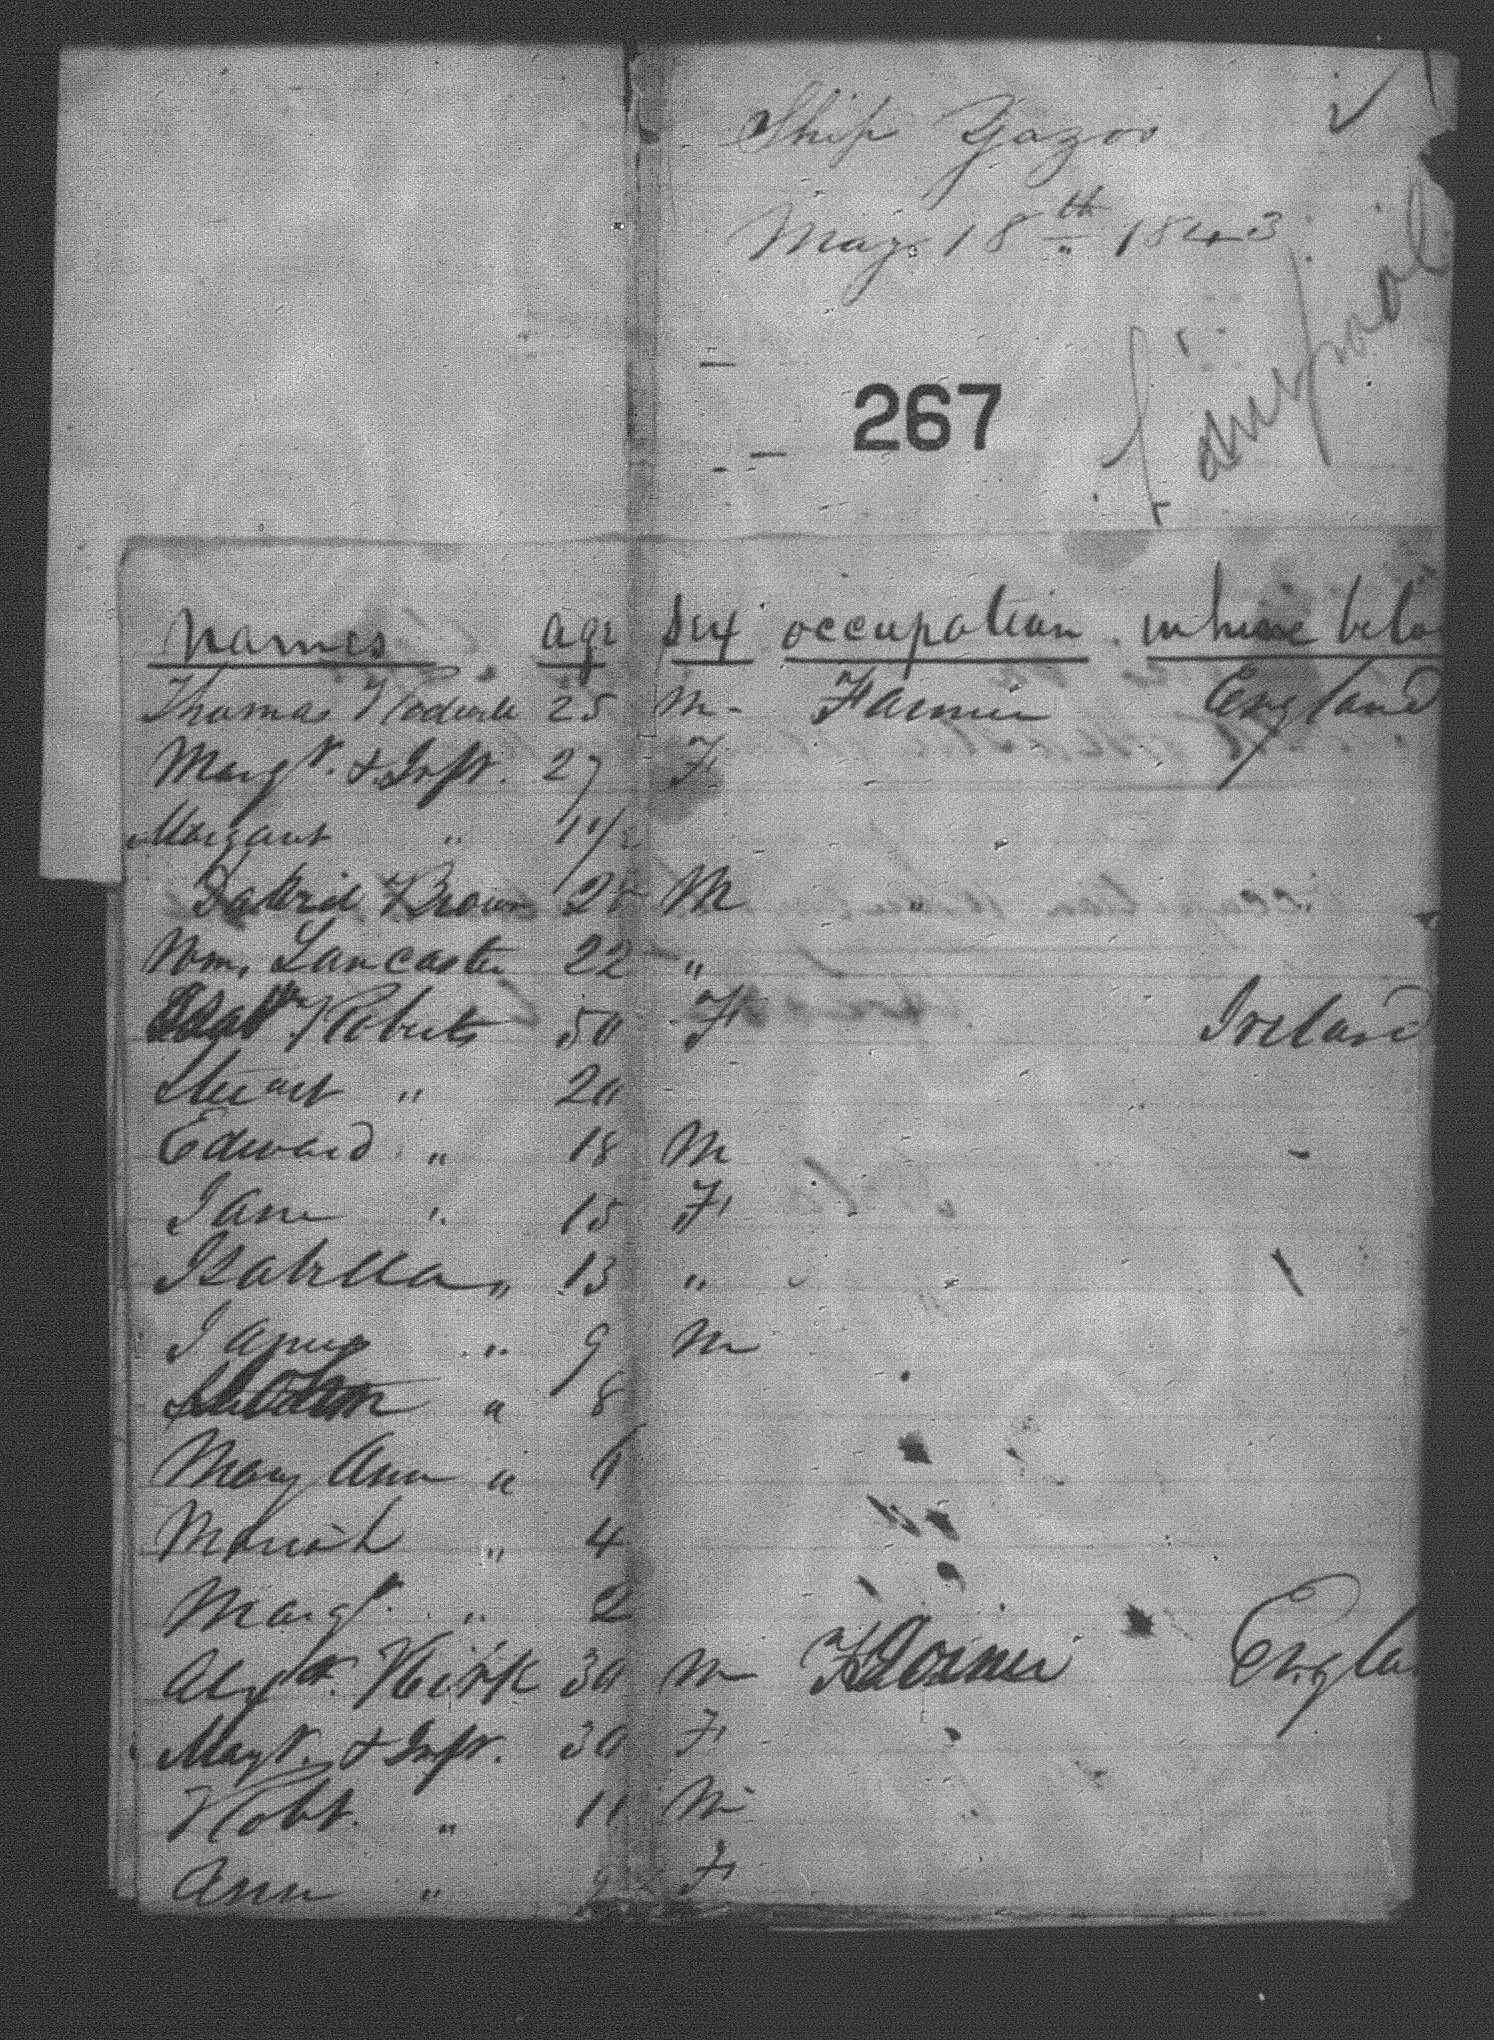 Ship Yazoo
May 18th 1843
Liverpool
267
names age sex occupation where belo
Thomas 25 m. Farmer England
Margt. & Inft. 27 F
Margaret " 1 1/2
Brown M
Wm. Lancaster 22 "
Roberts 50 F Ireland
Stuart " 20
Edward " 18 M
Jane " 15 F
Isabella " 13 "
James " 9 m
" 8
Mary Ann " 6
Moriah " 4
Margt. " 2
Kirk 30 m Farmer Engla
Margt. & Inft. 30 F
Robt. " 11 m
Ann " F